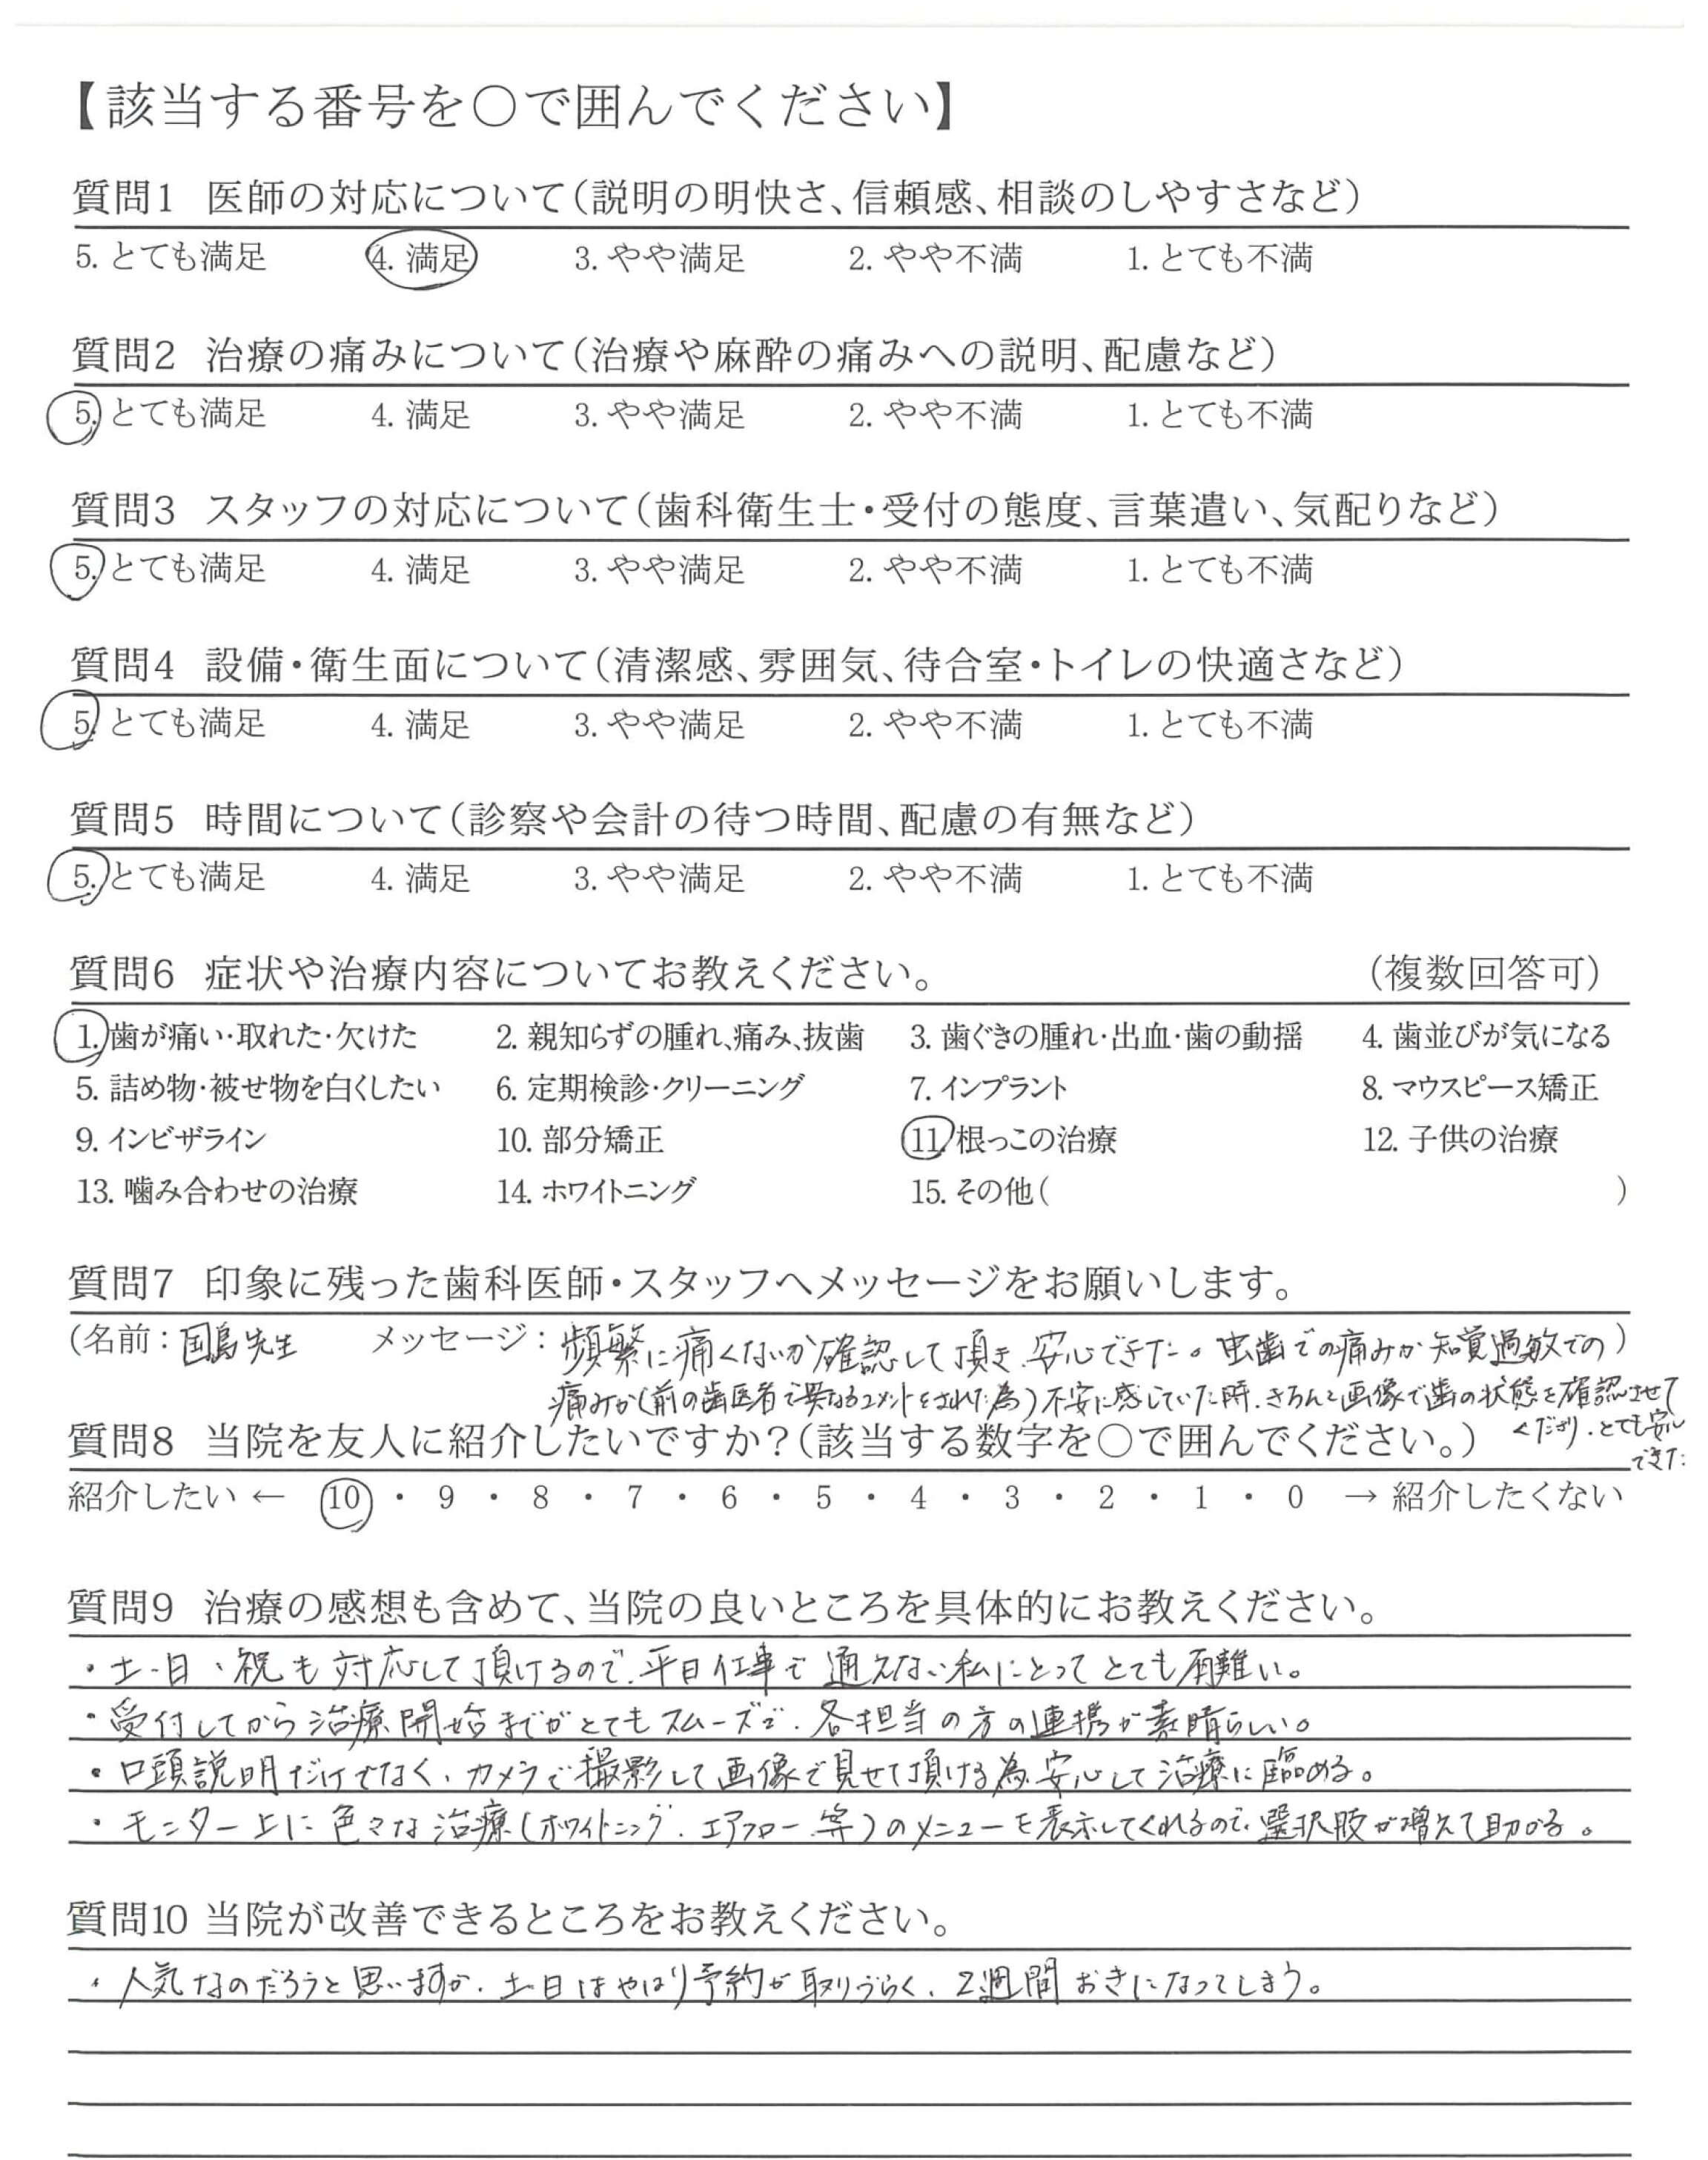 【該当する番号を○で囲んでください】
質問1 医師の対応について（説明の明快さ、信頼感、相談のしやすさなど）
5. とても満足 4. 満足 3. やや満足 2. やや不満 1. とても不満
質問2 治療の痛みについて（治療や麻酔の痛みへの説明、配慮など）
5. とても満足 4. 満足 3. やや満足 2. やや不満 1. とても不満
質問3 スタッフの対応について（歯科衛生士・受付の態度、言葉遣い、気配りなど）
5. とても満足 4. 満足 3. やや満足 2. やや不満 1. とても不満
質問4 設備・衛生面について（清潔感、雰囲気、待合室・トイレの快適さなど）
5. とても満足 4. 満足 3. やや満足 2. やや不満 1. とても不満
質問5 時間について（診察や会計の待つ時間、配慮の有無など）
5. とても満足 4. 満足 3. やや満足 2. やや不満 1. とても不満
質問6 症状や治療内容についてお教えください。 （複数回答可）
1. 歯が痛い・取れた・欠けた 2. 親知らずの腫れ、痛み、抜歯 3. 歯ぐきの腫れ・出血・歯の動揺 4. 歯並びが気になる
5. 詰め物・被せ物を白くしたい 6. 定期検診・クリーニング 7. インプラント 8. マウスピース矯正
9. インビザライン 10. 部分矯正 11. 根っこの治療 12. 子供の治療
13. 噛み合わせの治療 14. ホワイトニング 15. その他（ ）
質問7 印象に残った歯科医師・スタッフへメッセージをお願いします。
（名前：国島先生 メッセージ：頻繁に痛くないか確認して頂き、安心できた。虫歯での痛みか知覚過敏での）
痛みか（前の歯医者で異なるコメントをされた為）不安に感じていた所、きちんと画像で歯の状態を確認させて
くださり、とても安心
できた
質問8 当院を友人に紹介したいですか？（該当する数字を○で囲んでください。）
紹介したい ← 10 ・ 9 ・ 8 ・ 7 ・ 6 ・ 5 ・ 4 ・ 3 ・ 2 ・ 1 ・ 0 → 紹介したくない
質問9 治療の感想も含めて、当院の良いところを具体的にお教えください。
・土・日・祝も対応して頂けるので、平日仕事で通えない私にとってとても有難い。
・受付してから治療開始までがとてもスムーズで、各担当の方の連携が素晴らしい。
・口頭説明だけでなく、カメラで撮影して画像で見せて頂ける為、安心して治療に臨める。
・モニター上に色々な治療（ホワイトニング、エアフロー等）のメニューを表示してくれるので、選択肢が増えて助かる。
質問10 当院が改善できるところをお教えください。
・人気なのだろうと思いますが、土日はやはり予約が取りづらく、2週間おきになってしまう。